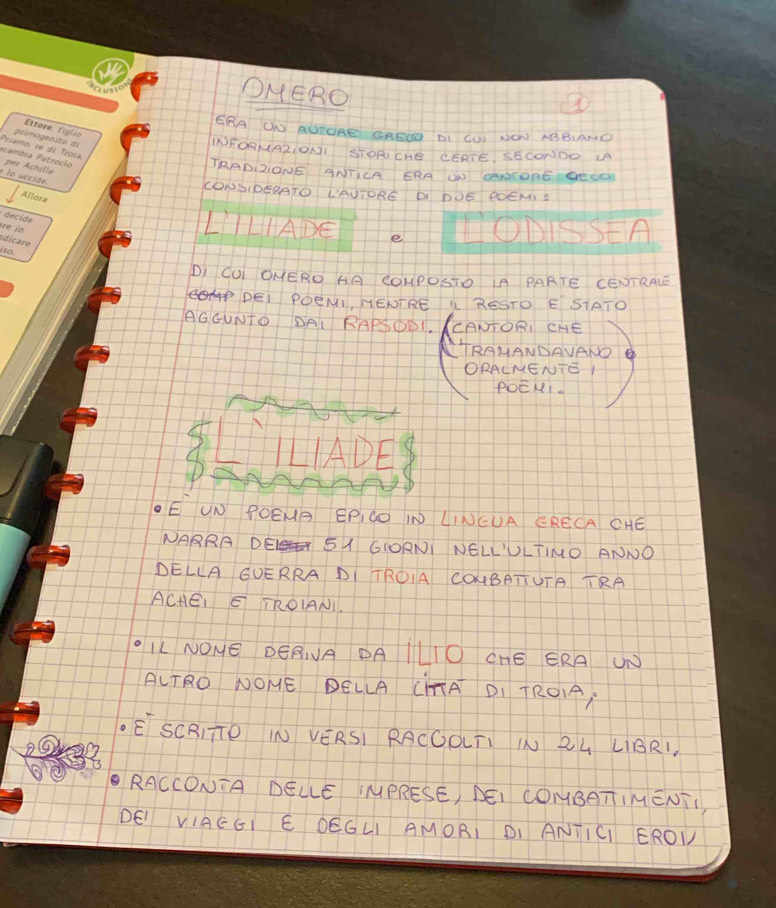 INCLUSIONE
Ettore, figlio
primogenito di
Priamo, re di Troia,
scambia Patroclo
per Achille
e lo uccide.
Allora
decide
re in
dicare
iso.
OMERO
1
ERA UN AUTORE GRECO DI CUI NON ABBIAMO
INFORMAZIONI STORICHE CERTE, SECONDO LA
TRADIZIONE ANTICA ERA UN CANTORE CECO
CONSIDERATO L'AUTORE DI DUE POEMI:
L'ILIADE e L'ODISSEA
DI CUI OMERO HA COMPOSTO LA PARTE CENTRALE
COMP DEI POEMI, MENTRE IL RESTO E' STATO
AGGUNTO DAI RAPSODI. (CANTORI CHE
TRAMANDAVANO
ORALMENTE I
POEMI.)
L'ILIADE
• E' UN POEMA EPICO IN LINGUA GRECA CHE
NARRA DEI 51 GIORNI NELL'ULTIMO ANNO
DELLA GUERRA DI TROIA COMBATTUTA TRA
ACHEI E TROIANI.
• IL NOME DERIVA DA ILIO CHE ERA UN
ALTRO NOME DELLA CITTA' DI TROIA,
• E' SCRITTO IN VERSI RACCOLTI IN 24 LIBRI,
• RACCONTA DELLE IMPRESE, DEI COMBATTIMENTI,
DEI VIAGGI E DEGLI AMORI DI ANTICI EROI